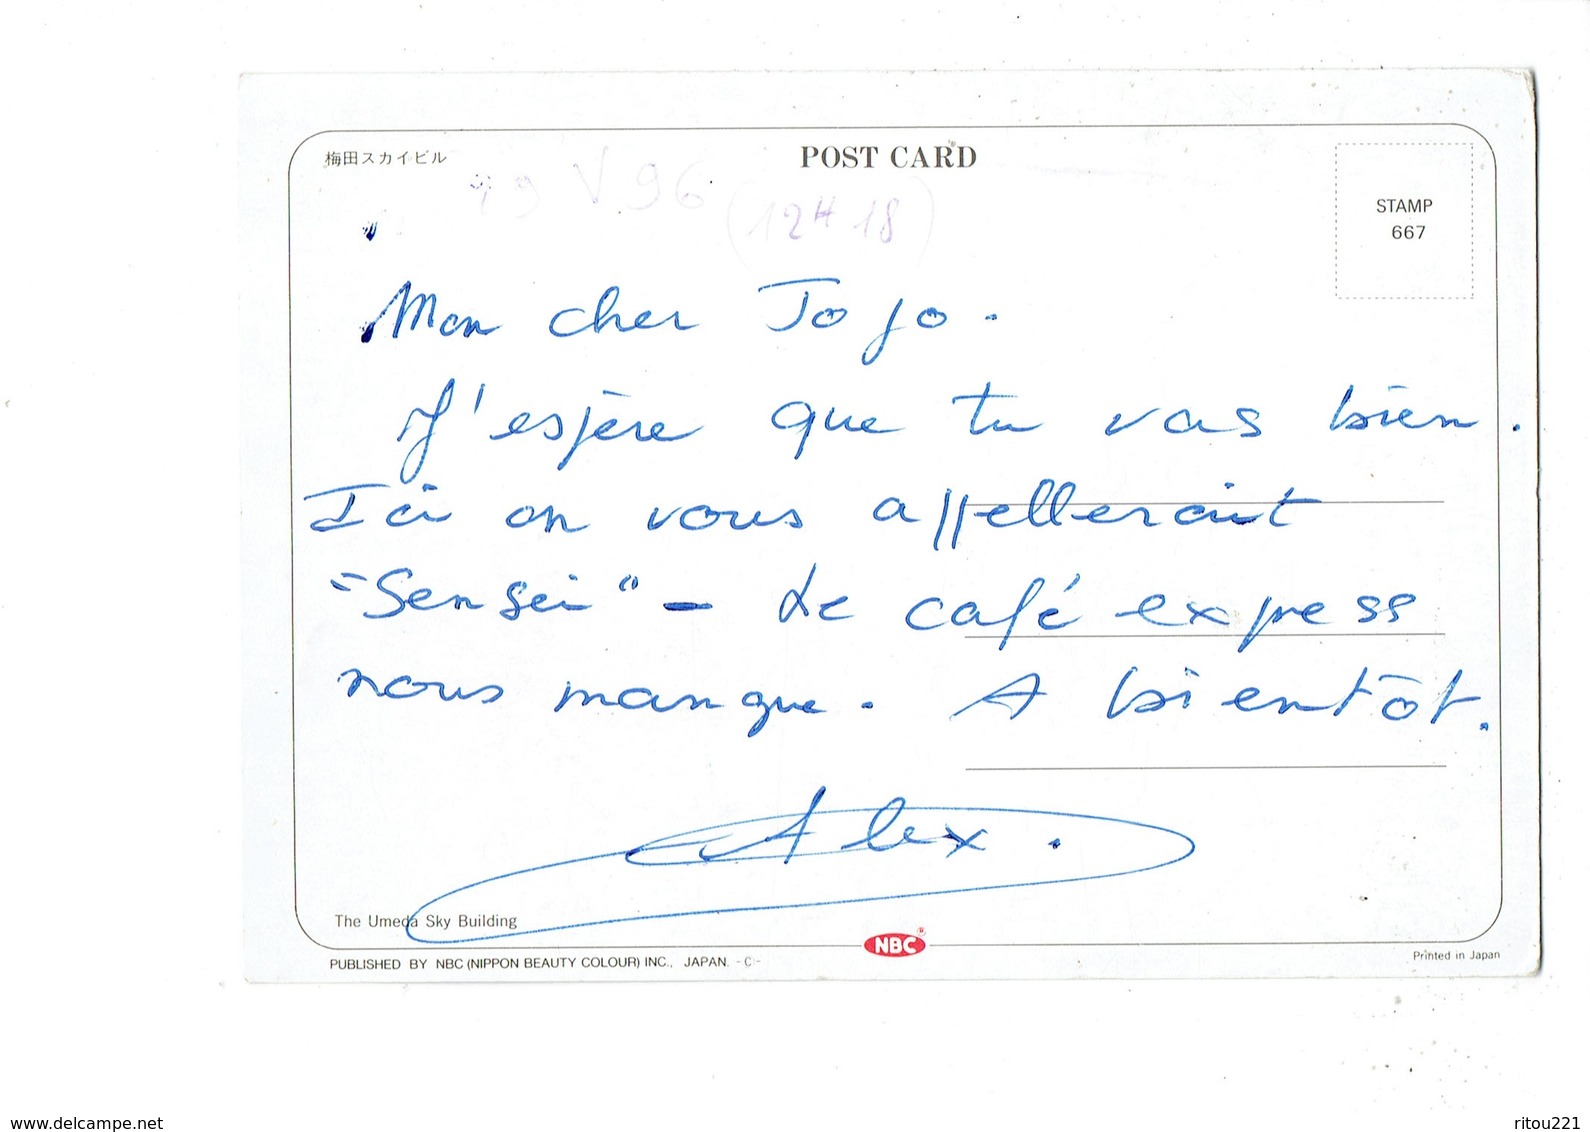 梅田スカイビル
POST CARD
V 96
(12H18)
STAMP
667
Mon cher Jojo.
J'espère que tu vas bien.
Ici on vous appellerait
"Sensei" - Le café express
nous manque. A bientôt.
Alex.
The Umeda Sky Building
NBC
PUBLISHED BY NBC (NIPPON BEAUTY COLOUR) INC., JAPAN. -C-
Printed in Japan
www.delcampe.net
ritou221